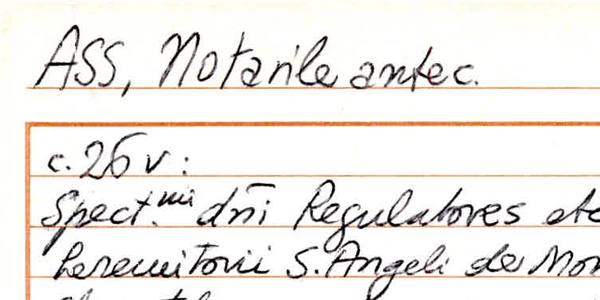 ASS, Notarile antec.
c. 26 v:
Spect.mi dñi Regulatores etc
heremitorii S. Angeli de Mon